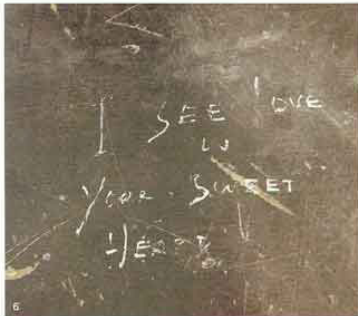 I SEE LOVE
IN
YOUR SWEET
HEART
6